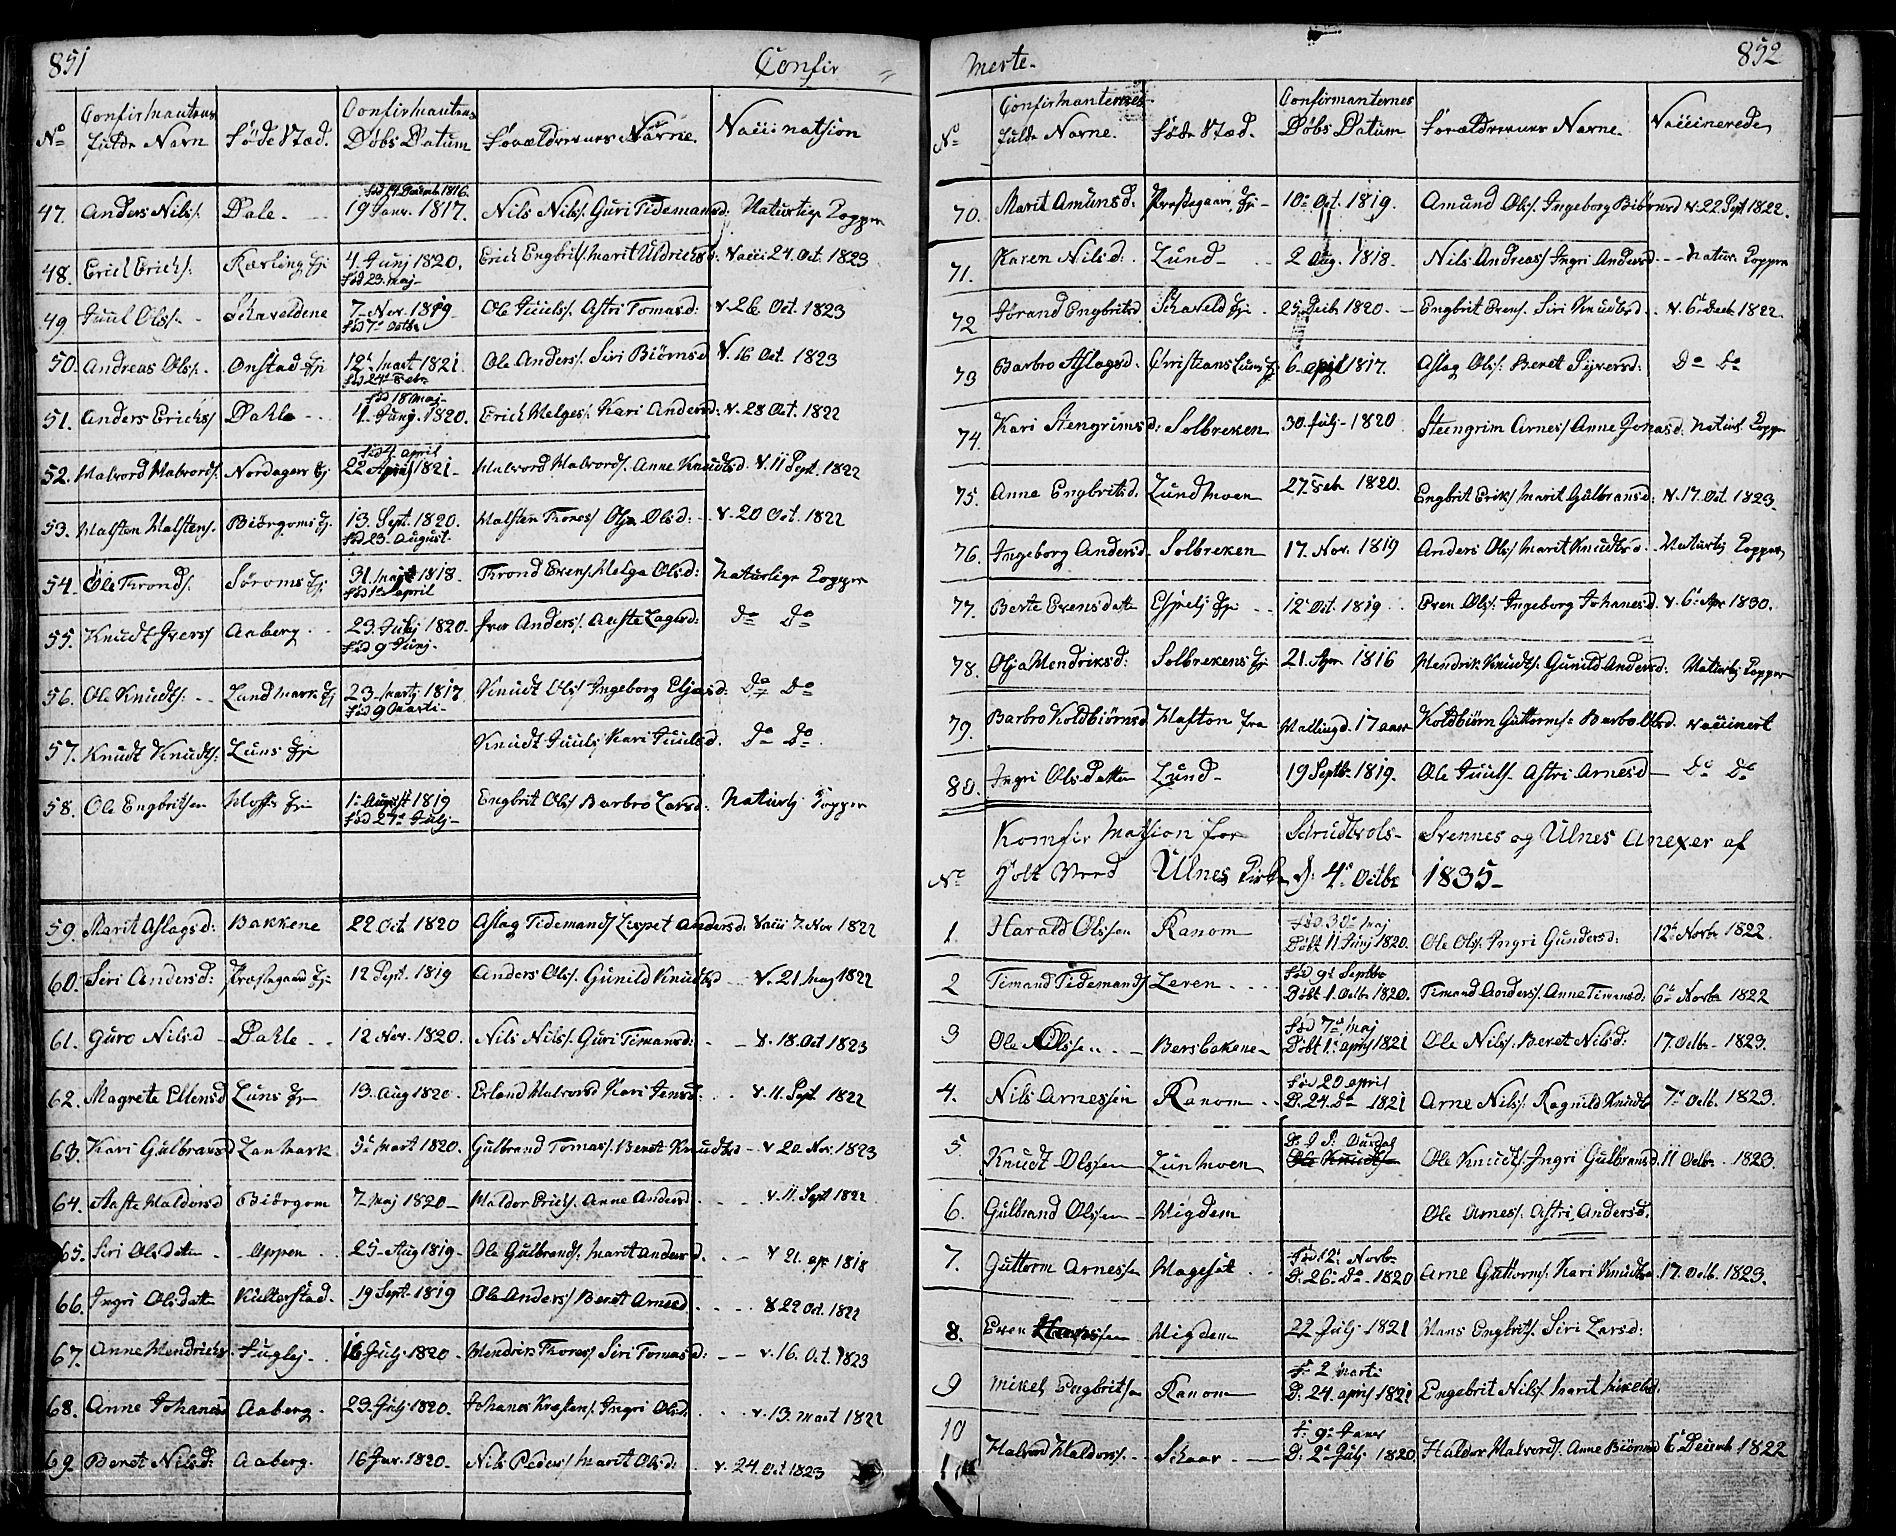 851
Confir =
No
Confirmantens
fulde Navn
Føde Stæd.
Confirmantens
Døbs Datum
Forældrenes Navne.
Vaccination
fød 14 Decemb 1816.
47. Anders Nils. Dale. 19 Janv. 1817. Nils Nils. Guri Tidemansd: Naturlige Copper
48. Erich Erichs: Ræfling Ej 4. Junj 1820. Erich Engbrits. Marit Uldrichsd: Vacci 24. Oct. 1823
fød 23. Maj
49 Juul Ols. 7 Nov. 1819 Ole Juuls. Astri Tomasd: V. 26 Oct. 1823
50. Andreas Ols. Onstad Ej 12t Mart 1821. Ole Anders. Siri Biørnsd V. 16 Oct. 1823
fød 24 Febr
fød 18 Maj
51. Anders Erichs Dahle 4. Junj. 1820. Erich Helges. Kari Andersd: V. 28 Oct. 1822
fød 4. april
52. Halvord Halvords. Nordagers Ej 22 April 1821 Halvord Halvords. Anne Knudtsd. V. 11 Sept. 1822
53. Halsten Halstens. Biørgoms Ej 13. Sept. 1820. Halsten Thores Olja Olsd: V. 20 Oct. 1822
fød 23. August.
54. Ole Thronds. Søroms Ej. 31. 1818. Thrond Evens Helga Olsd: Naturlige Copper
fød 1 april
55. Knudt Ivers Aaberg 23. Julj 1820. Iver Anders. Aaste Lagesd: Do Do
fød 9 Junj.
56. Ole Knudts: Landmark Ej 23. Martj 1817 Knudt Ols Ingeborg Eljasd: Do Do
fød 9 Marti
57. Knudt Knudts: Luns Ej Knudt Juuls Kari Juulsd. Do Do
58. Ole Engbritsen Hoffs Ej 1. August 1819 Engbrit Ols Barbro Larsd. Naturlj Copper
fød 27 Julj
59. Marit Aslagsd: Bakkene 22 Oct. 1820 Aslag Tidemands Lispet Andersd: Vacci 7. Nov 1822
60. Siri Andersd: Præstegaard Ej 12 Sept. 1819 Anders Ols. Gunild Knudtsd V. 21 Maj 1822
61. Guro Nilsd Dahle 12 Nov. 1820. Nils Nils. Guri Timansd: V. 18. Oct 1823
62. Magrete Ellensd Luns Ej 13. Aug 1820. Erland Halvorsd Kari Jensd: V. 11. Sept 1822
63. Kari Gulbransd Lanmark 5t Mart 1820. Gulbrand Tomas. Beret Knudtsd V. 20 Nov. 1823
64. Aaste Haldorsd Biørgom 7 Maj 1820 Haldor Erichs. Anne Andersd V. 11. Sept 1822
65. Siri Olsdatter Oppen 25. Aug 1819 Ole Gulbrands: Marit Andersd. V 21. ap 1818
66. Ingri Olsdatter Kulterstad. 19 Sept. 1819 Ole Anders Beret Arnesd V 22 Oct. 1822
67. Anne Hendrichs: Fuglej 16 Julj 1820 Hendrik Thores. Siri Tomasd: V. 16. Oct. 1823
68. Anne Johannesd Aaberg. 23. Julj 1820. Johanes Krestens. Ingri Olsd. V. 13. Mart 1822
69. Beret Nilsd: Aaberg. 16 Jan. 1820. Nils Peders Marit Olsd: V. 24. Oct 1823
merte.
852
No
Confirmanternes
fulde Navne.
Føde Stæd.
Confirmanternes
Døbs Datum
Forældrenes Navne.
Vaccinerede
70. Marit Amunsd: Præstegaar Ej 10 Oct. 1819. Amund Ols. Ingeborg Biørnsd V. 22 Sept 1822.
71. Karen Nilsd: Lund 2 Aug. 1818. Nils Andreas Ingri Andersd Natur. Copper
72 Jørand Engbritsd Skaveld Ej 25 Decb 1820. Engbrit Evens. Siri Knudtsd. V. 6 Decb 1822.
73 Barbro Aslagsd. Christians Luns Ej. 6 april 1817. Aslag Ols. Beret Siversd: Do Do
74. Kari Stengrimsd: Solbreken 30. Julj 1820 Steengrim Arnes Anne Jonasd. Naturl. Copper
75. Anne Engbritsd. Lundmoen 27. Feb 1820. Engbrit Eriks Marit Gulbransd: V. 17. Oct. 1823.
76. Ingeborg Andersd Solbreken 17. Nov. 1819 Anders Ols Marit Knudtsd. Naturlj Copper
77. Berte Evensdatter Espelj Ej 12 Oct. 1819 Even Ols. Ingeborg Johanesd. V. 6 Apr 1830.
78. Olja Hendriksd: Solbrekens Ej 21. Apr. 1816 Hendrik Knudts. Gunild Andersd. Naturlj Copper
79. Barbro Koldbiørnsd Haften fra Hallingd. 17 aar Koldbiørn Guttorms: Barbo Olsd. vaccinert
80. Ingri Olsdatter Lund 19 Septb. 1819. Ole Juuls. Astri Arnesd Do Do
Komfirmation for Strudtvols Svennes og Ulnes Anexer af
holt Vered Ulnes Kirke d: 4 Octbr 1835
No
fød 30 Maj
1. Harald Olssen Ranom Døbt 11 Junj 1820. Ole Ols. Ingri Gundersd: 12 Novbr 1822.
fød 9 Septbr
2 Timand Tidemands Leren Døbt 1. Octbr 1820. Timand Anders. Anne Timansd: 6 Novbr 1822
fød 7 Maj
3 Ole Nilssen Bersbakene Døbt 1 april 1821 Ole Nils. Beret Nilsd: 17. Octbr 1823.
fød 20 april
4. Nils Arnessen Ranom D. 24. Do 1821 Arne Nils. Ragnild Knudts 7 Octb. 1823.
D. I S: Ourdal
5 Knudt Olssen Lunmoen Ole Knudts Ole Knudts. Ingri Gulbransd. 11 Octbr 1823.
6. Gulbrand Olssen Migdem Ole Arnes. Astri Andersd.
fød 12 Novbr
7. Guttorm Arnessen Hagesæt D. 26 Do 1820 Arne Guttorms. Kari Knudts 17. Octb. 1823.
8. Even Migdem 22 Julj 1821 Hans Engbrits. Siri Larsd:
f. 2 Marti
9 Mikel Engbritsen Ranom D. 24. april 1821 Engebrit Nils. Marit Mikelsd.
f. 9 Janv
10 Halvord Haldors. Skaar D. 2 Julj 1820. Haldor Halvords. Anne Biørnsd 6 Decemb 1822